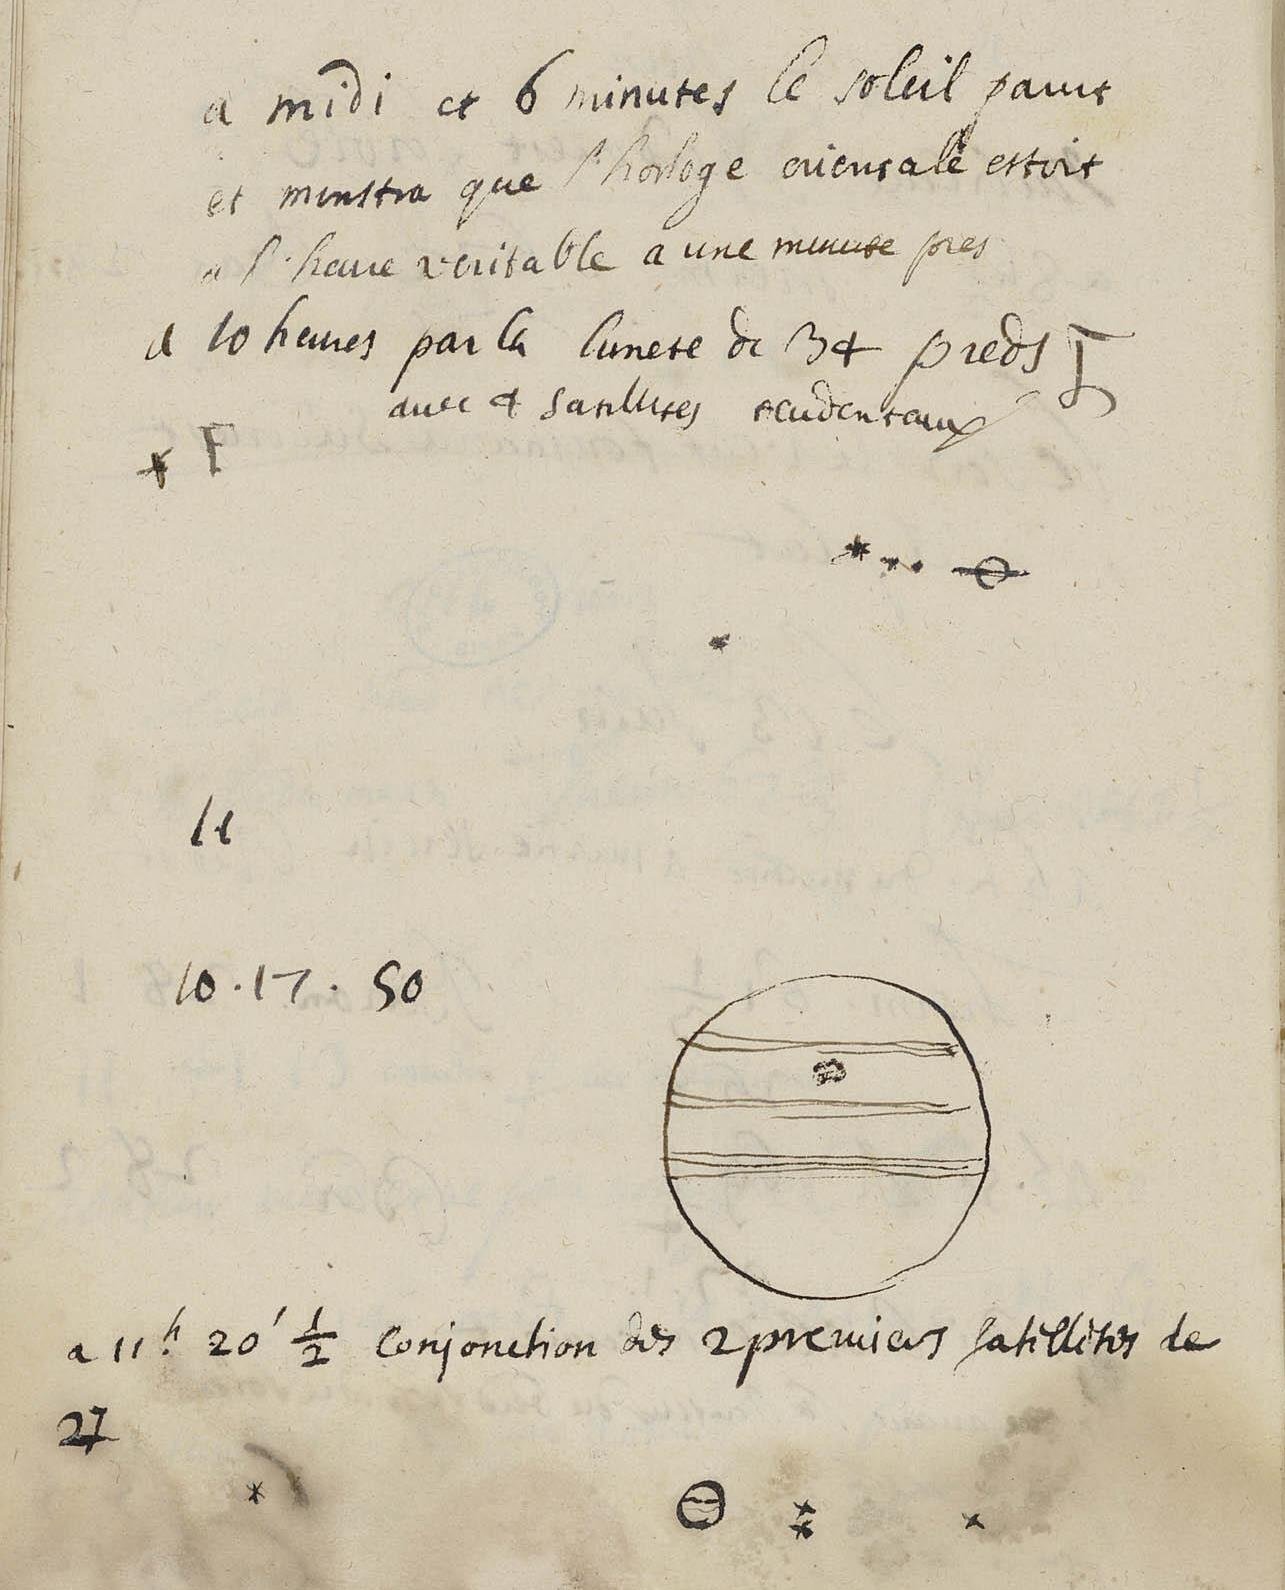 a midi et 6 minutes le soleil parut
et monstra que l'horloge orientale estoit
a l'heure veritable a une minute pres
a 10 heures par la lunete de 34 pieds ♄
avec 4 satellites
F
le
10 . 17 . 50
a 11h 20' 1/2 Conjonction des 2 premiers satellites de
♃